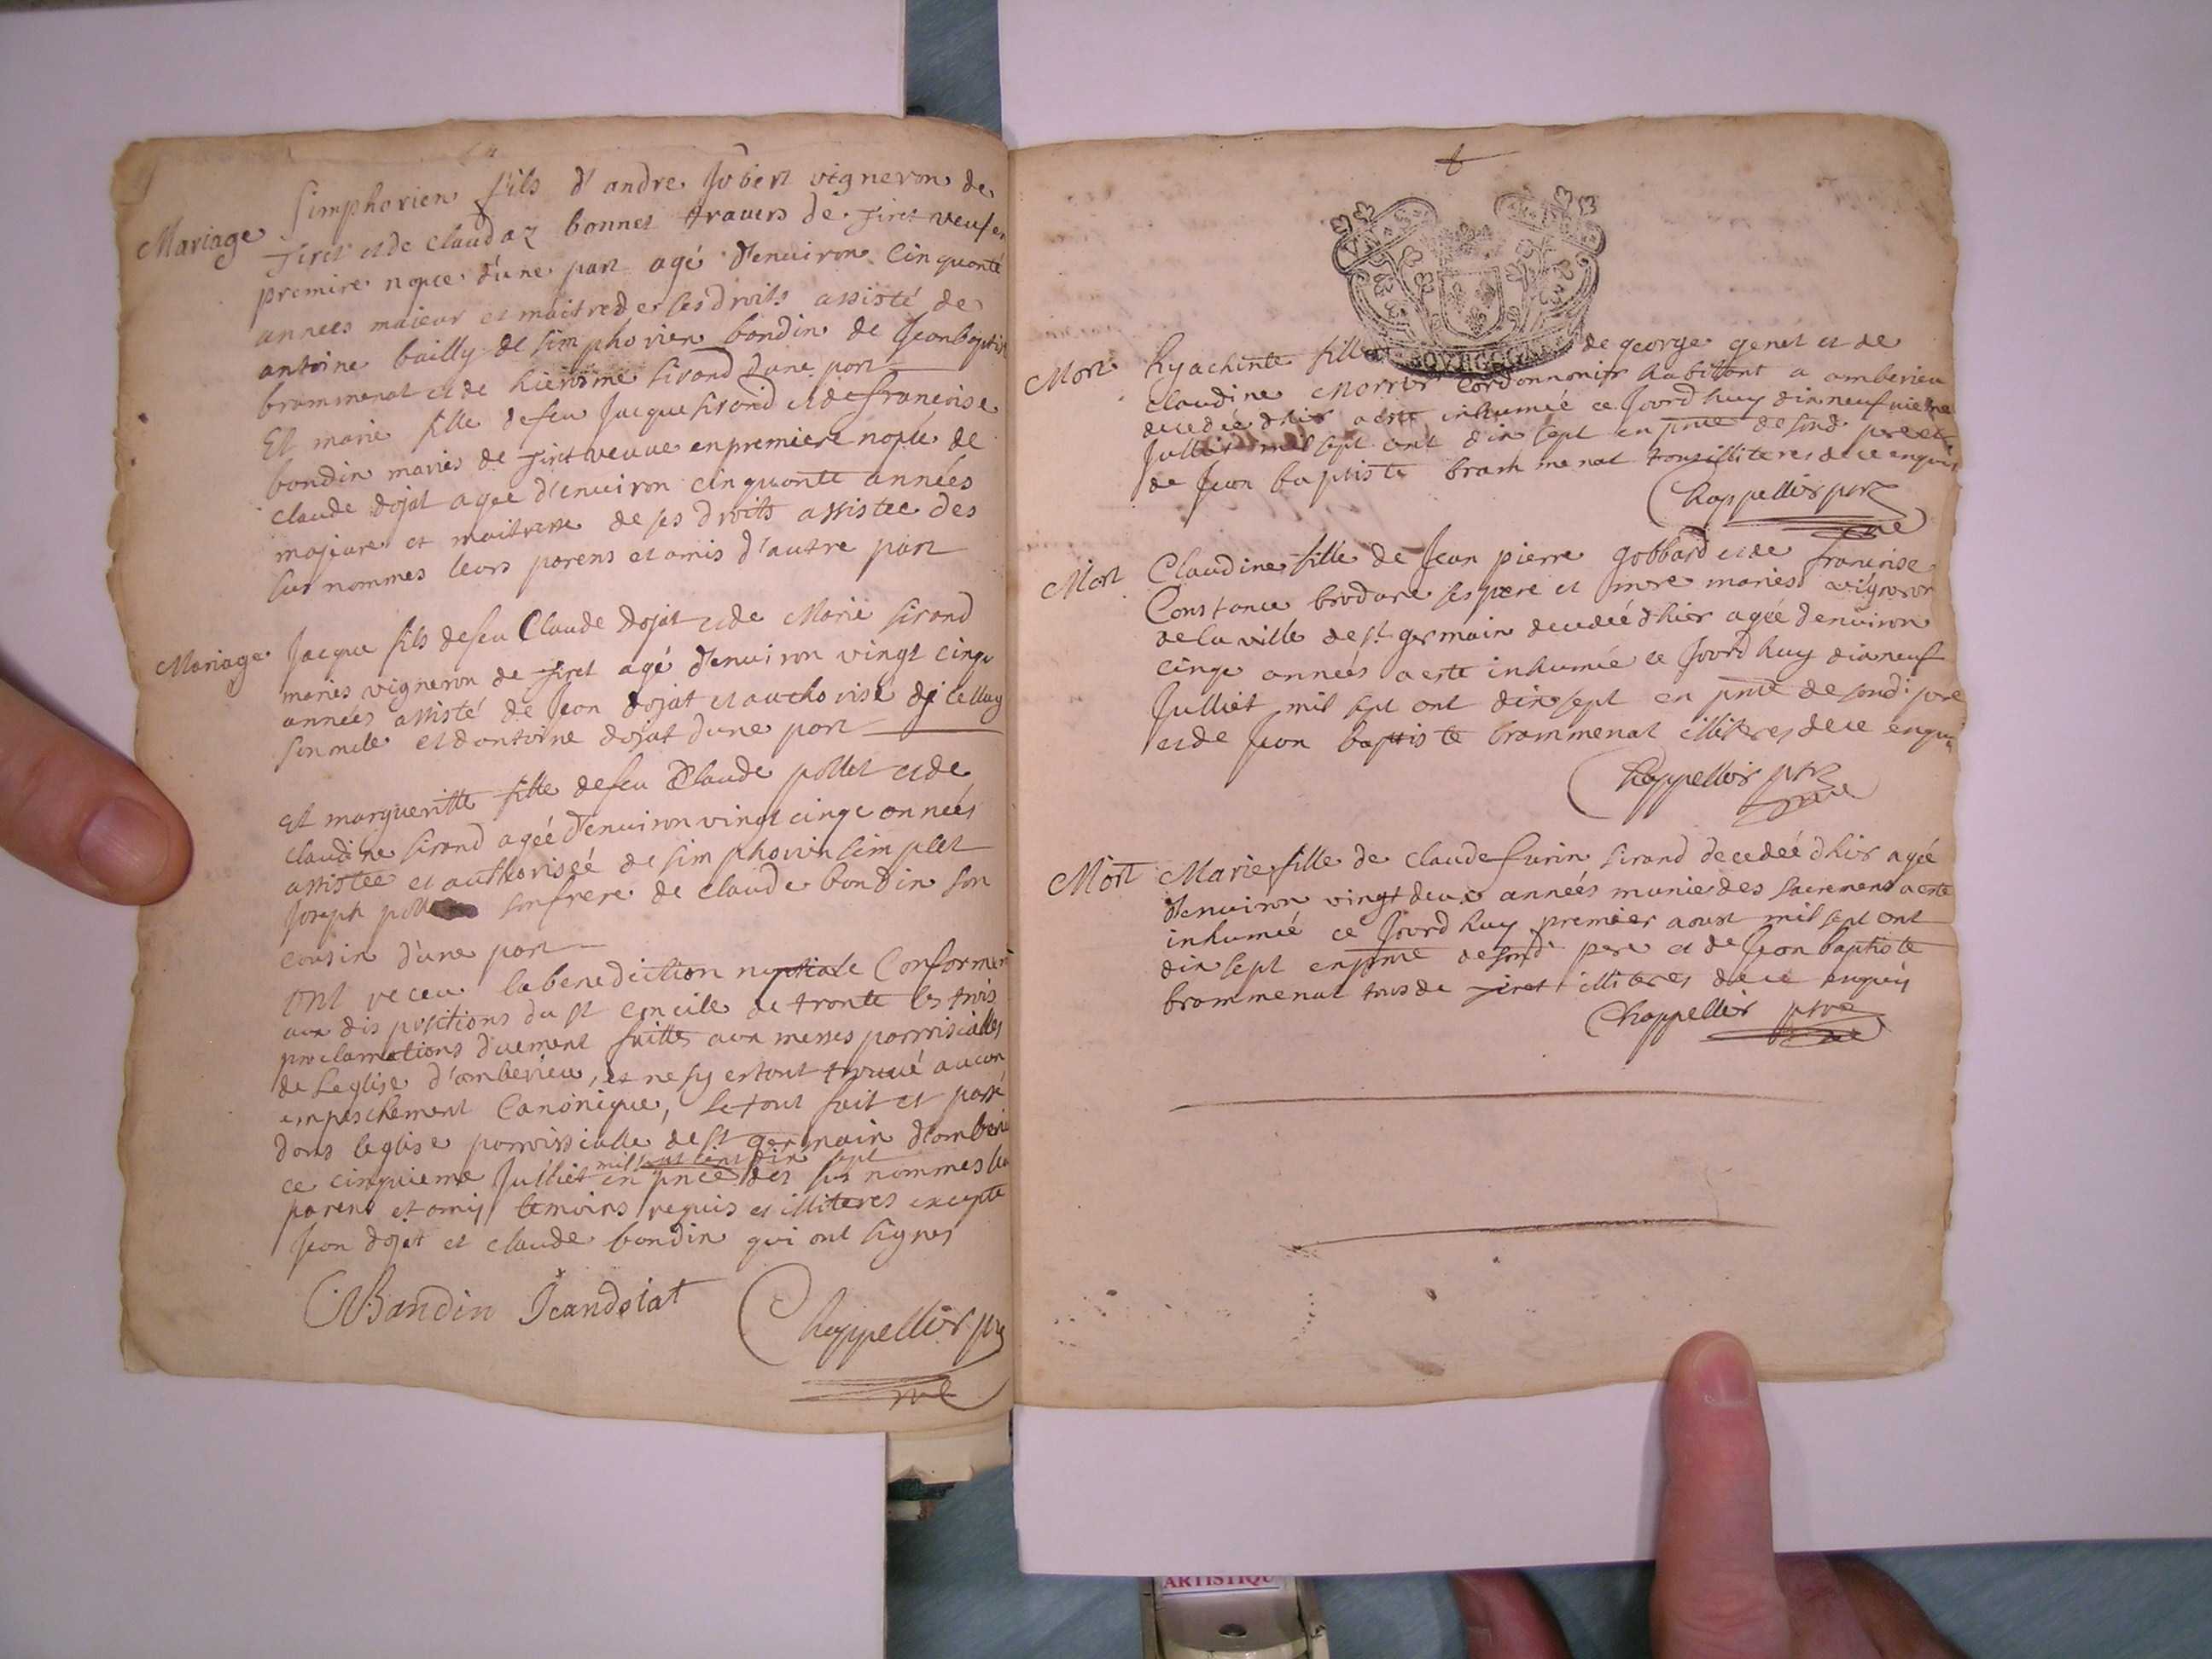 Mariage
Simphorien fils d'andre Jobert vigneron de
Tiret et de Claudaz bonnet travers de Tiret veuf en
premire nopce d'une part agé d'environ Cinquante
années maieur et maitre de ses droits assisté de
antoine bailly de Simphorien bondin de Jean baptiste
brammenat et de hierosme Sirand d'une part
Et marie fille de feu Jacque Sirand et de françoise
bondin mariés de Tiret veuve en premiere nopce de
Claude dojat agée d'environ cinquante années
majeure et maitresse de ses droits assistée des
sus nommes leurs parens et amis d'autre part
Mariage
Jacque fils de feu Claude Dojat et de Marie Sirand
mariés vigneron de Tiret agé d'environ vingt cinq
années assisté de Jean dojat et authorisé d'icelluy
et d'antoine dojat d'une part
Et margueritte fille de feu Claude pollet et de
claudine Sirand agée d'environ vingt cinqe années
assistée et authorisée de Simphorien Simplet
Joseph son frere de claude bondin son
cousin d'une part
Ont receu la benediction nuptiale Conforment
aux dispositions du St Concile de trante les trois
proclamations duement faittes aux messes parroissialles
de Leglise d'amberieu, et ne sy estant trouvé aucun
empeschement Canonique, Le tout fait et passé
dans leglise parroissialle de St germain d'amberieu
mil sept cent dix sept
ce cinquieme Julliet en pnce des sus nommes
parens et amis temoins requis et illiteres excepte
Jean dojat et claude bondin qui ont signes
CBandin Jeandoiat
Chappellier

Mort
hyachinte fille de george genet et de
Claudine Cordonnonier habittant a amberieu
decedée d'hier a esté inhumée ce Jourd'huy dixneufvieme
Julliet mil sept cent dix sept en pnce de sond. pere et
de Jean baptiste brammenat tous illiteres de ce enquis
Chappellier
Mort
Claudine fille de Jean pierre gobbard et de françoise
Constance ses pere et mere mariés vigneron
de la ville de St germain decedée d'hier agée d'environ
cinqe années a esté inhumée ce Jourd'huy dixneuf
Julliet mil sept cent dix sept en pnce de sond. pere
et de Jean baptiste brammenat illiteres de ce enquis
Chappellier
Mort
Marie fille de claude Sirand decedée d'hier agée
d'environ vingt deux années munie des sacremens a esté
inhumée ce Jourd'huy premier aoust mil sept cent
dix sept en pnce de sond. pere et de Jean baptiste
brammenat tous de Tiret illiteres de ce enquis
Chappellier
ARTISTIQU